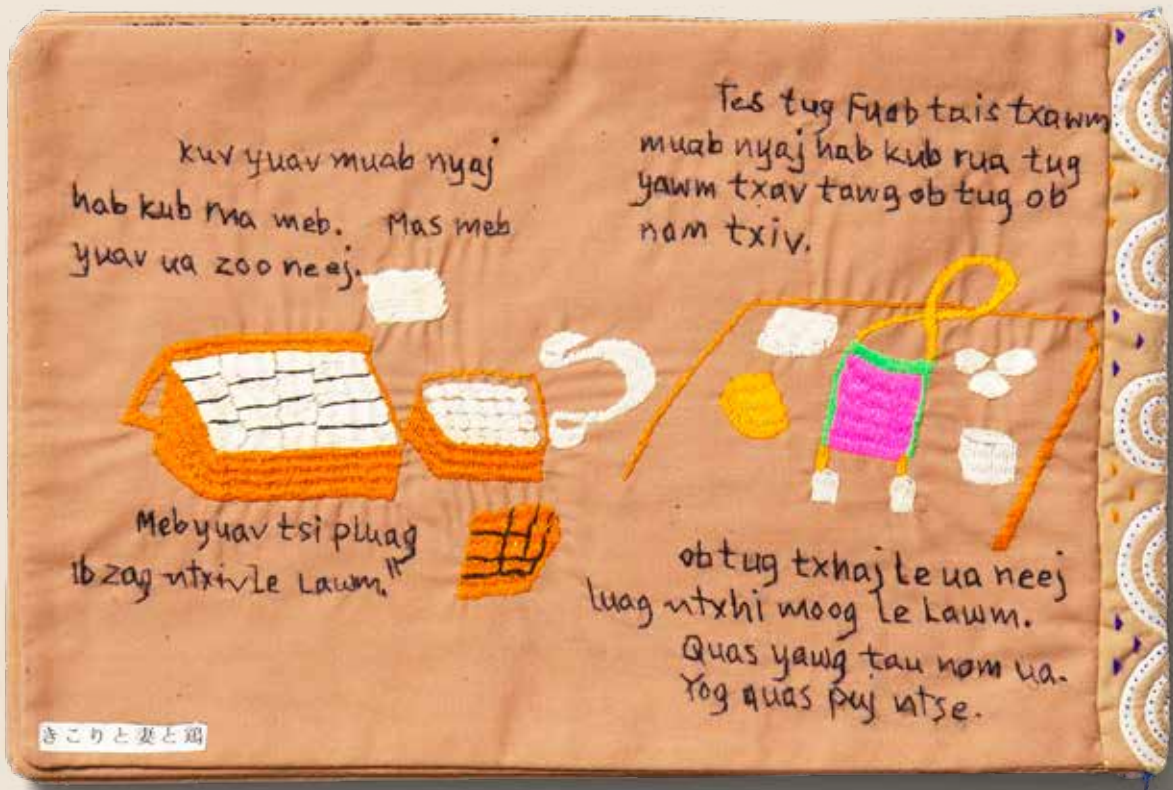 Kuv yuav muab nyaj
hab kub rua meb. Mas meb
yuav ua zoo neej.
Meb yuav tsi pluag
ib zag ntxiv le lawm."
Tes tug Fuab tais txawm
muab nyaj hab kub rua tug
yawm txav tawg ob tug ob
nam txiv.
ob tug txhaj le ua neej
luag ntxhi moog le lawm.
Quas yawg tau nom ua.
Yog quas puj ntse.
きこりと妻と鶏